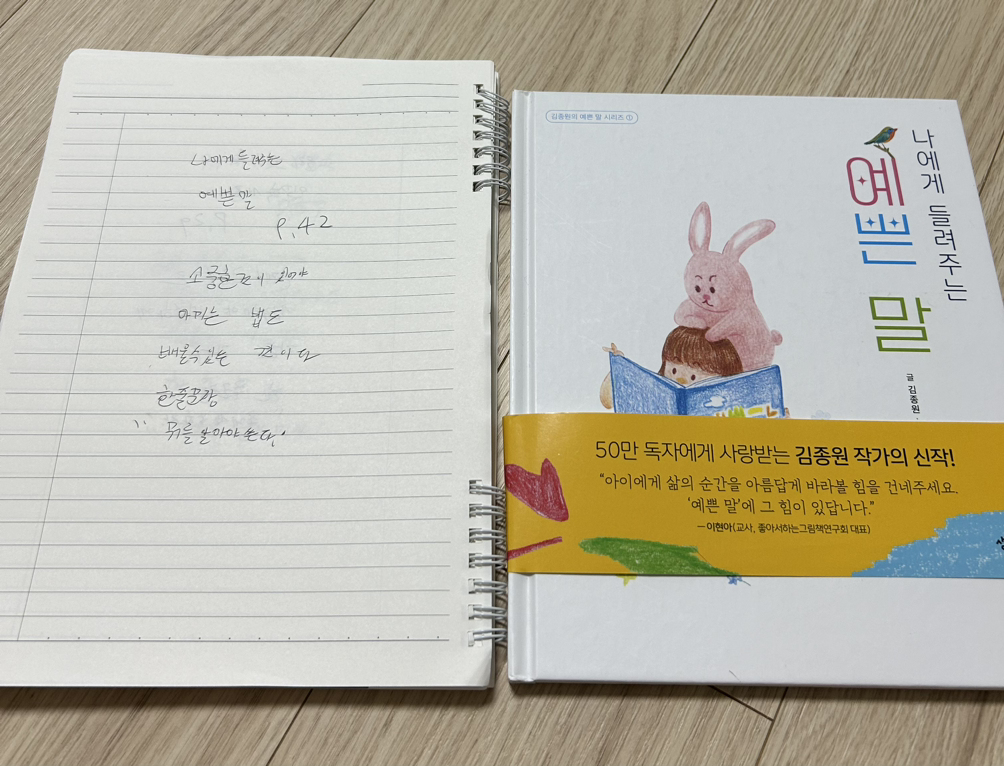 나에게 들려주는
예쁜 말
P.42
소중한 것이 있어야
아끼는 법도
배울 수 있는 것이다
한줄꿀팁
" 뭐를 알아야 쓴다.
김종원의 예쁜 말 시리즈 ①
나에게 들려주는
예쁜 말
글 김종원
50만 독자에게 사랑받는 김종원 작가의 신작!
"아이에게 삶의 순간을 아름답게 바라볼 힘을 건네주세요.
'예쁜 말'에 그 힘이 있답니다."
—이현아(교사, 좋아서하는그림책연구회 대표)